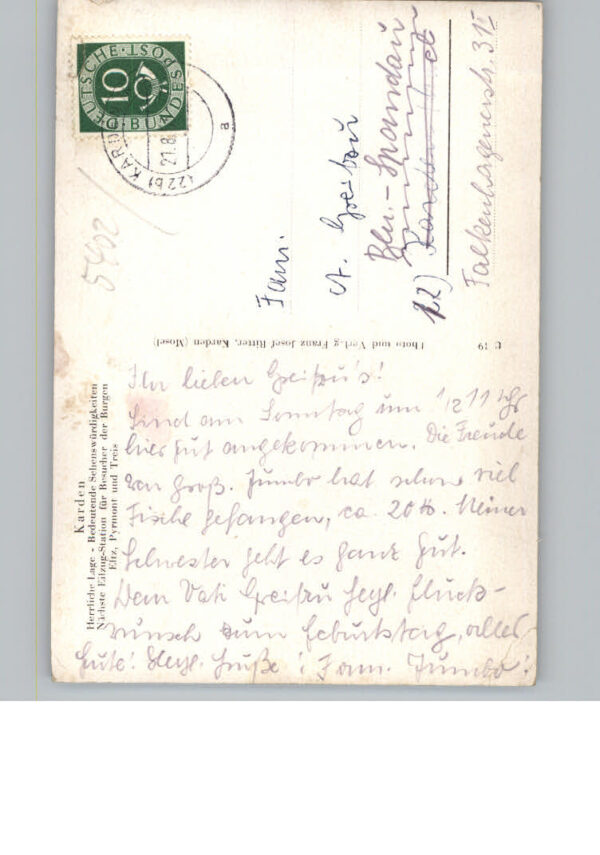 Karden
Herrliche Lage - Bedeutende Sehenswürdigkeiten
Nächste Eilzug-Station für Besucher der Burgen
Eltz, Pyrmont und Treis
Ihr lieben Greifzu's!
Sind am Sonntag um 1/2 11 Uhr
hier gut angekommen. Die Freude
war groß. Jumbo hat schon viel
Fische gefangen, ca. 20 St. Meiner
Schwester geht es ganz gut.
Dem Vati Greifzu herzl. Glück-
wunsch zum Geburtstag, alles
Gute! Herzl. Grüße! Fam. Jumbo!
Photo und Verlag Franz Josef Ritter, Karden (Mosel)
C 19
DEUTSCHE BUNDESPOST
10
(22b) KARD
21.8.
a
5402
Fam.
A. Greifzu
Bln.-Spandau
22)
Falkenhagenerstr. 31